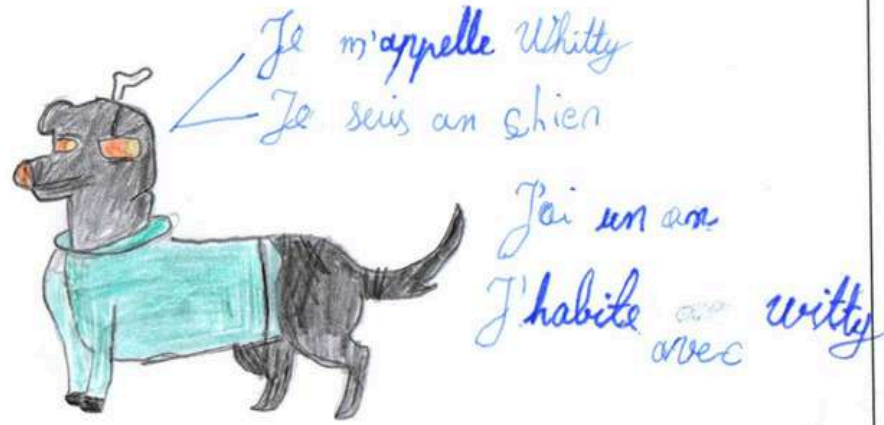 Je m'appelle Whitty
Je suis an chien
J'ai un an
J'habite witty
avec